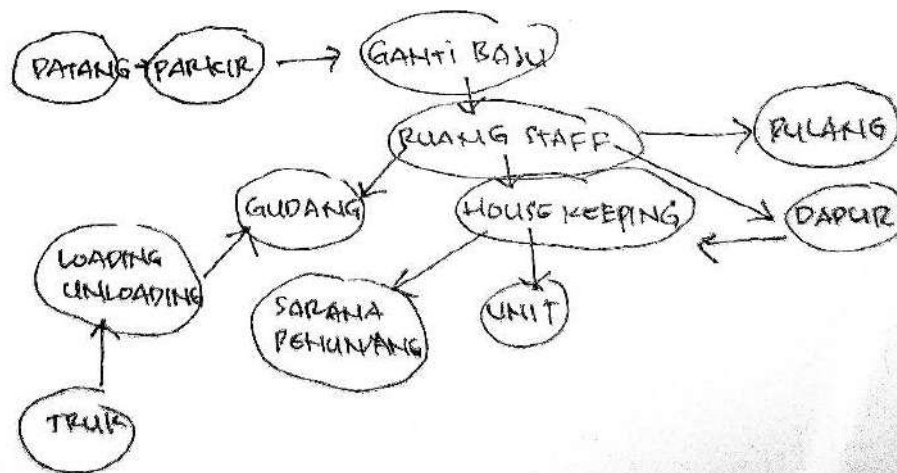 DATANG
PARKIR
GANTI BAJU
RUANG STAFF
PULANG
GUDANG
HOUSE KEEPING
DAPUR
LOADING
UNLOADING
SARANA
PENUNJANG
UNIT
TRUK